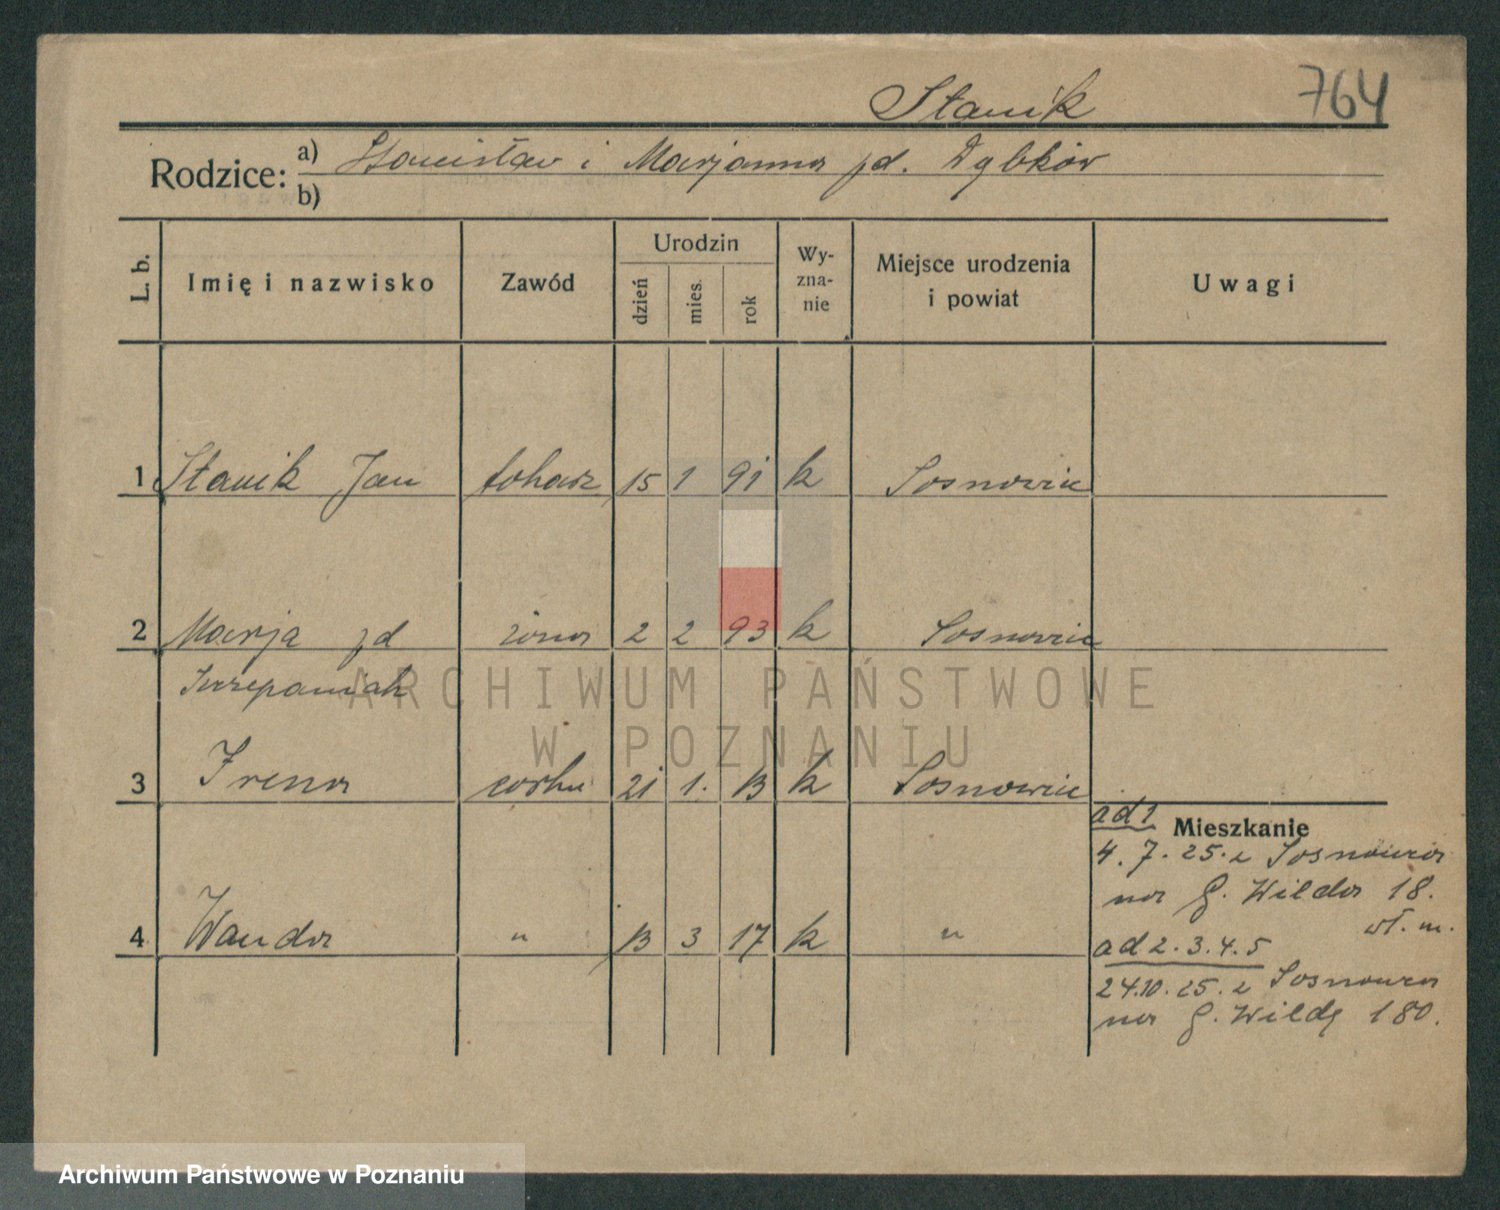 Stanik
764
Rodzice: a) Stanisław i Marjanna zd. Dybków
b)
L. b.
Imię i nazwisko
Zawód
Urodzin
dzień
mies.
rok
Wy-
zna-
nie
Miejsce urodzenia
i powiat
Uwagi
1 Stanik Jan tokarz 15 1 91 k Sosnowiec
2 Marja zd żona 2 2 93 k Sosnowiec
Szczepaniak
3 Irena córka 21 1. 13 k Sosnowiec
ad 1
Mieszkanie
4. 7. 25. z Sosnowca
na G. Wilda 18.
4 Wanda " 13 3 17 k "
ad 2. 3. 4. 5
24.10.25. z Sosnowca
na G. Wildę 180.
ARCHIWUM PAŃSTWOWE
W POZNANIU
Archiwum Państwowe w Poznaniu